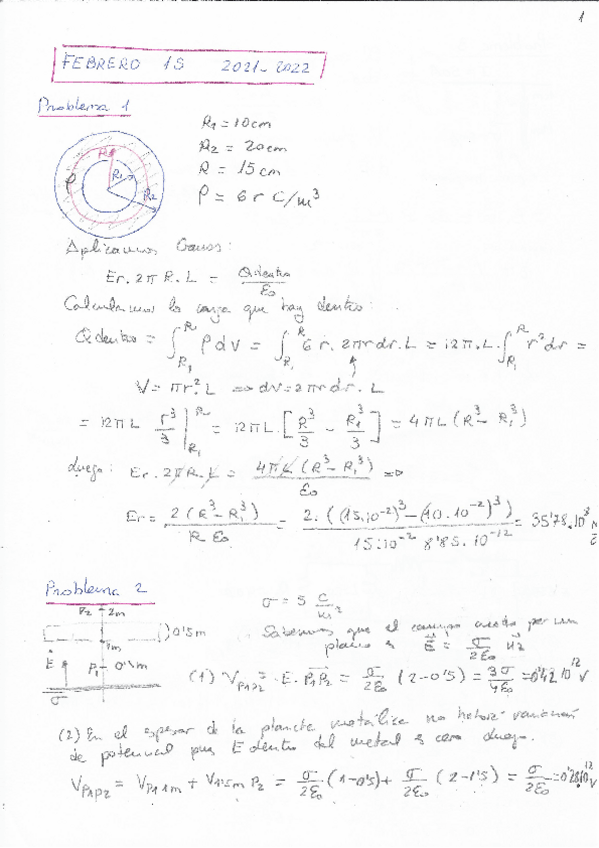 1
FEBRERO 1S 2021-2022
Problema 1
R₁ = 10 cm
R₂ = 20 cm
R = 15 cm
ρ = 6 r C/m³
R R₁ R₂ ρ
Aplicamos Gauss:
Er. 2π R. L = Qdentro / ε₀
Calculamos la carga que hay dentro:
Qdentro = ∫_{R₁}^{R} ρ dV = ∫_{R₁}^{R} 6 r. 2πr dr. L = 12π. L. ∫_{R₁}^{R} r² dr =
V = πr². L ⇒ dV = 2πr dr. L
= 12πL r³/3 |_{R₁}^{R} = 12πL. [R³/3 - R₁³/3] = 4πL (R³ - R₁³)
luego: Er. 2πR. L = 4πL (R³ - R₁³) / ε₀ ⇒
Er = 2 (R³ - R₁³) / R ε₀ = 2. ((15.10⁻²)³ - (10.10⁻²)³) / 15.10⁻² 8'85. 10⁻¹² = 35'78.10⁸ N/C
Problema 2
σ = 5 C/m²
P₂ 2m
)0'5m
1m
E P₁ 0'5m
σ
Sabemos que el campo creado por un
plano es E⃗ = σ/2ε₀ u⃗
(1) V_{P1P2} = E. P₁P₂ = σ/2ε₀ (2-0'5) = 3σ/4ε₀ = 0'42 10¹² V
(2) En el espesor de la plancha metálica no habrá variación
de potencial pues E dentro del metal es cero luego.
V_{P1P2} = V_{P1 1m} + V_{1'5m P2} = σ/2ε₀ (1-0'5) + σ/2ε₀ (2-1'5) = σ/2ε₀ = 0'28 10¹² V